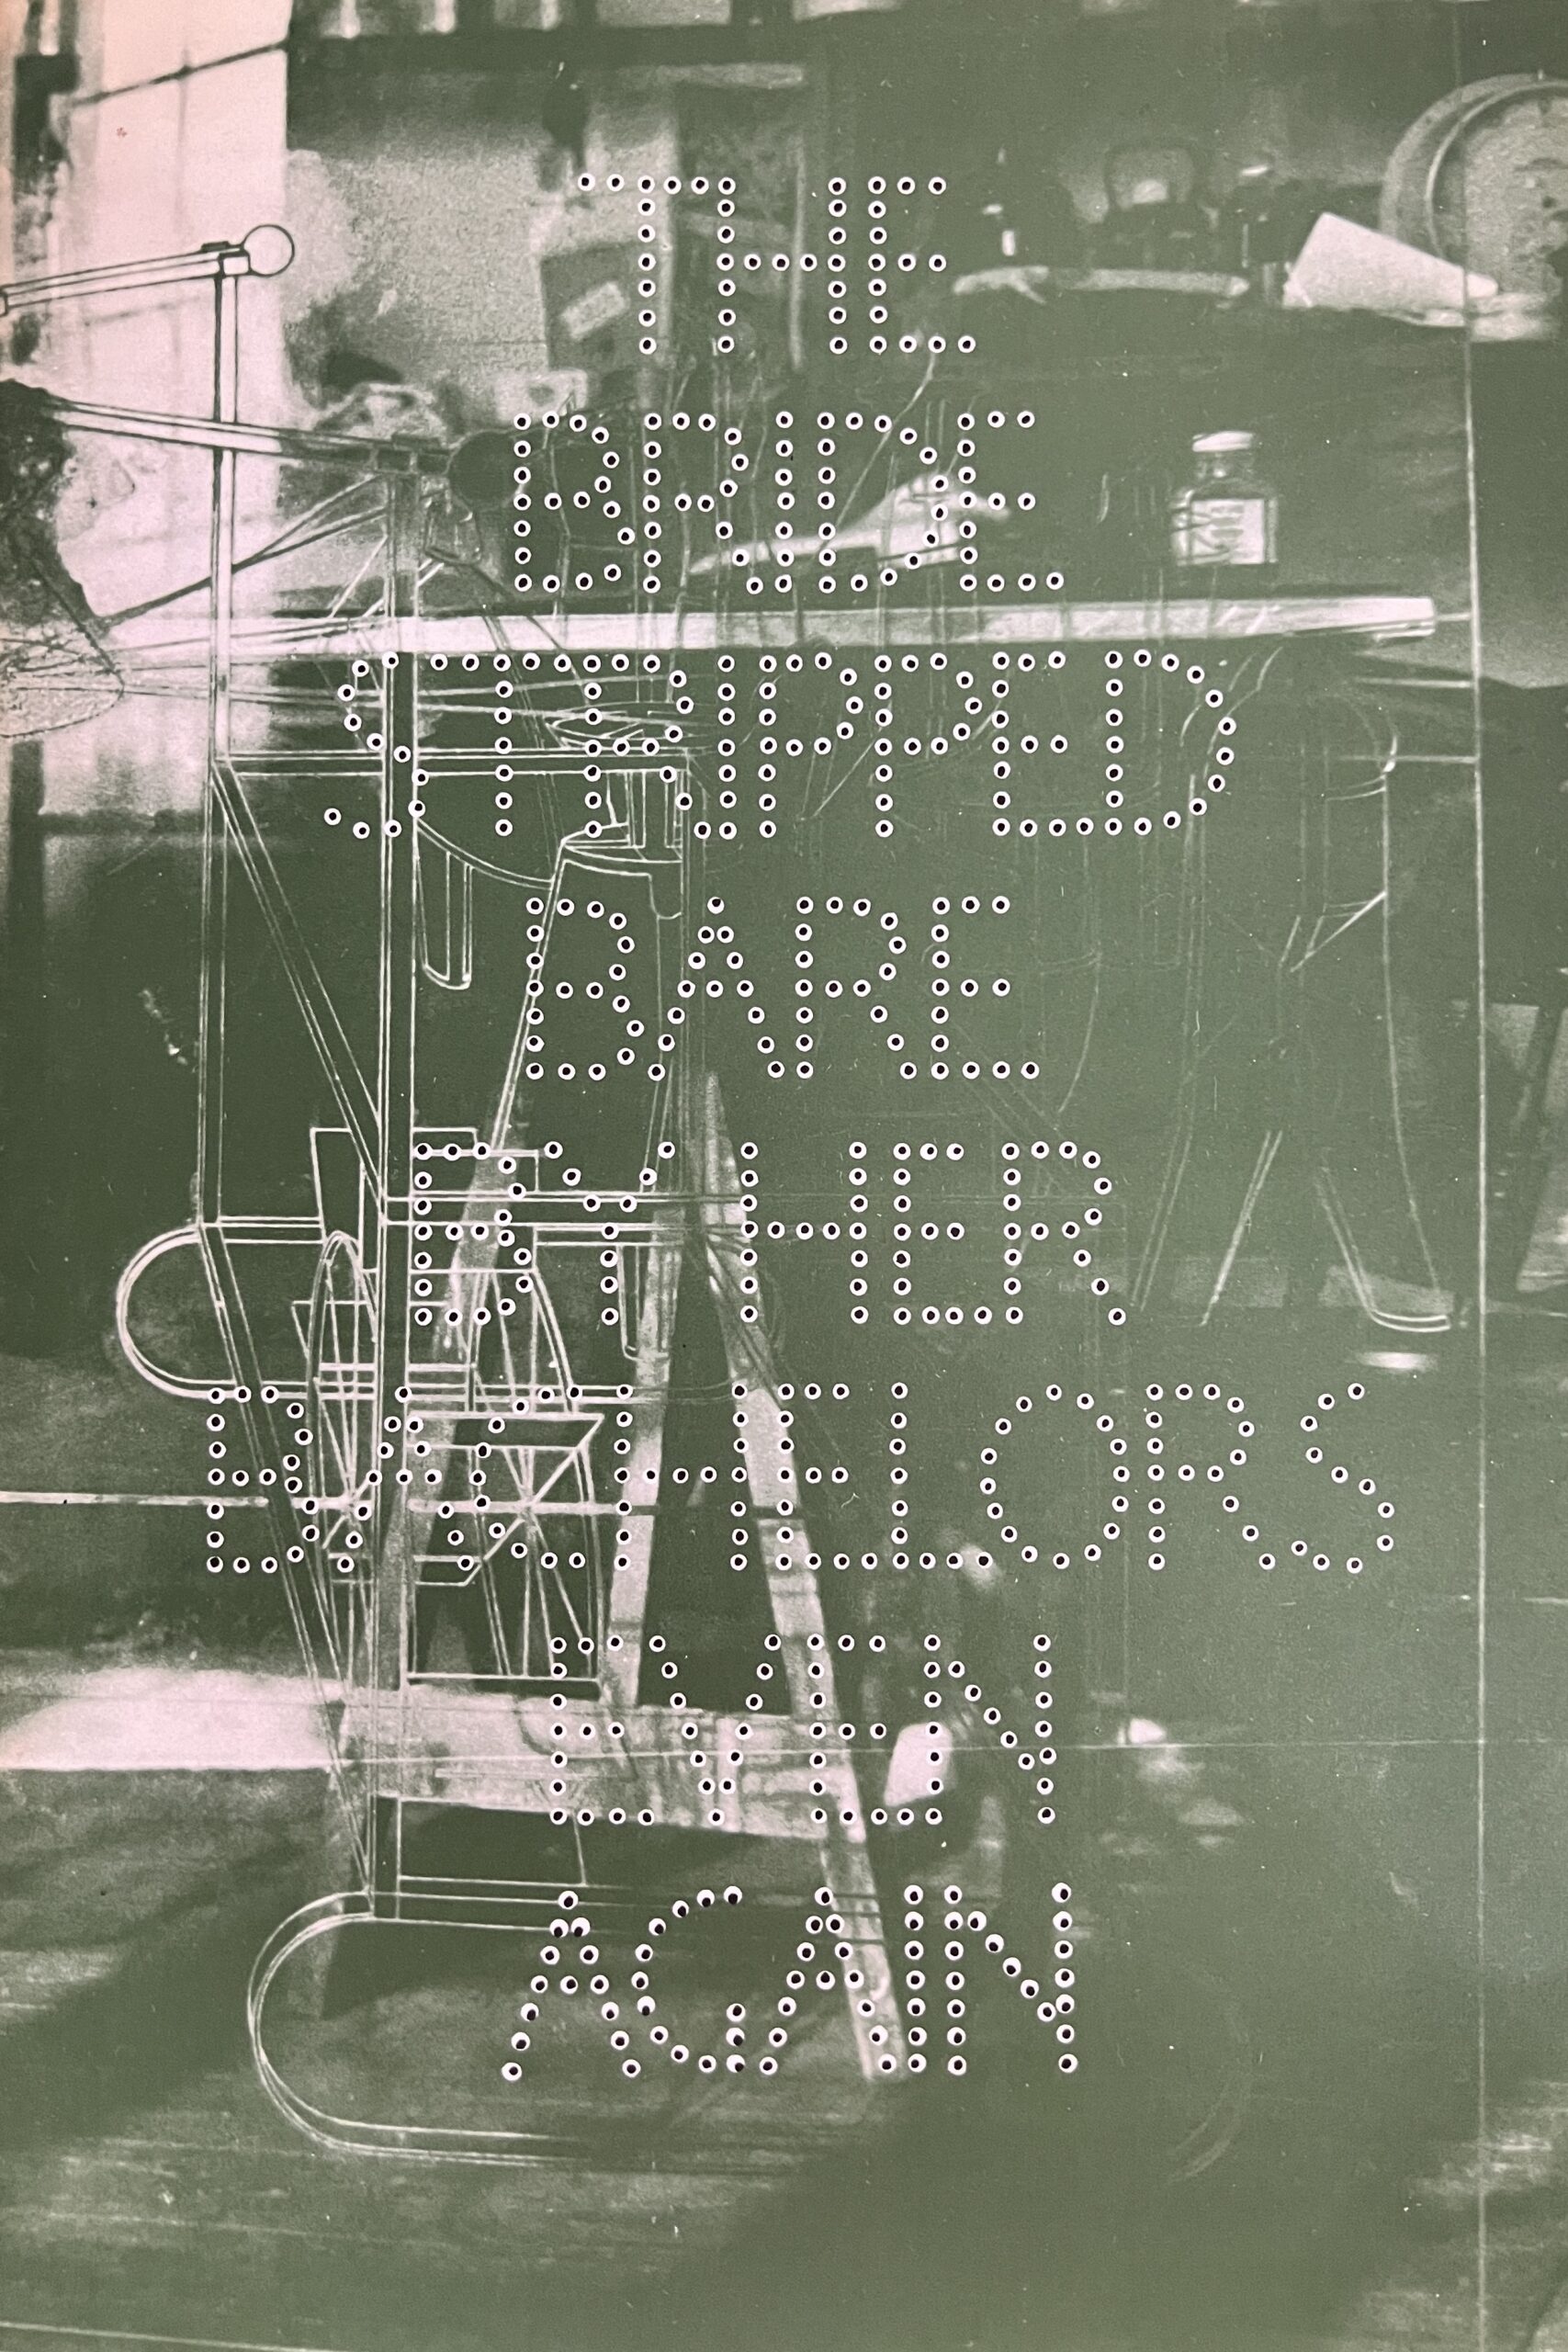 THE
BRIDE
STRIPPED
BARE
BY HER
BACHELORS
EVEN
AGAIN